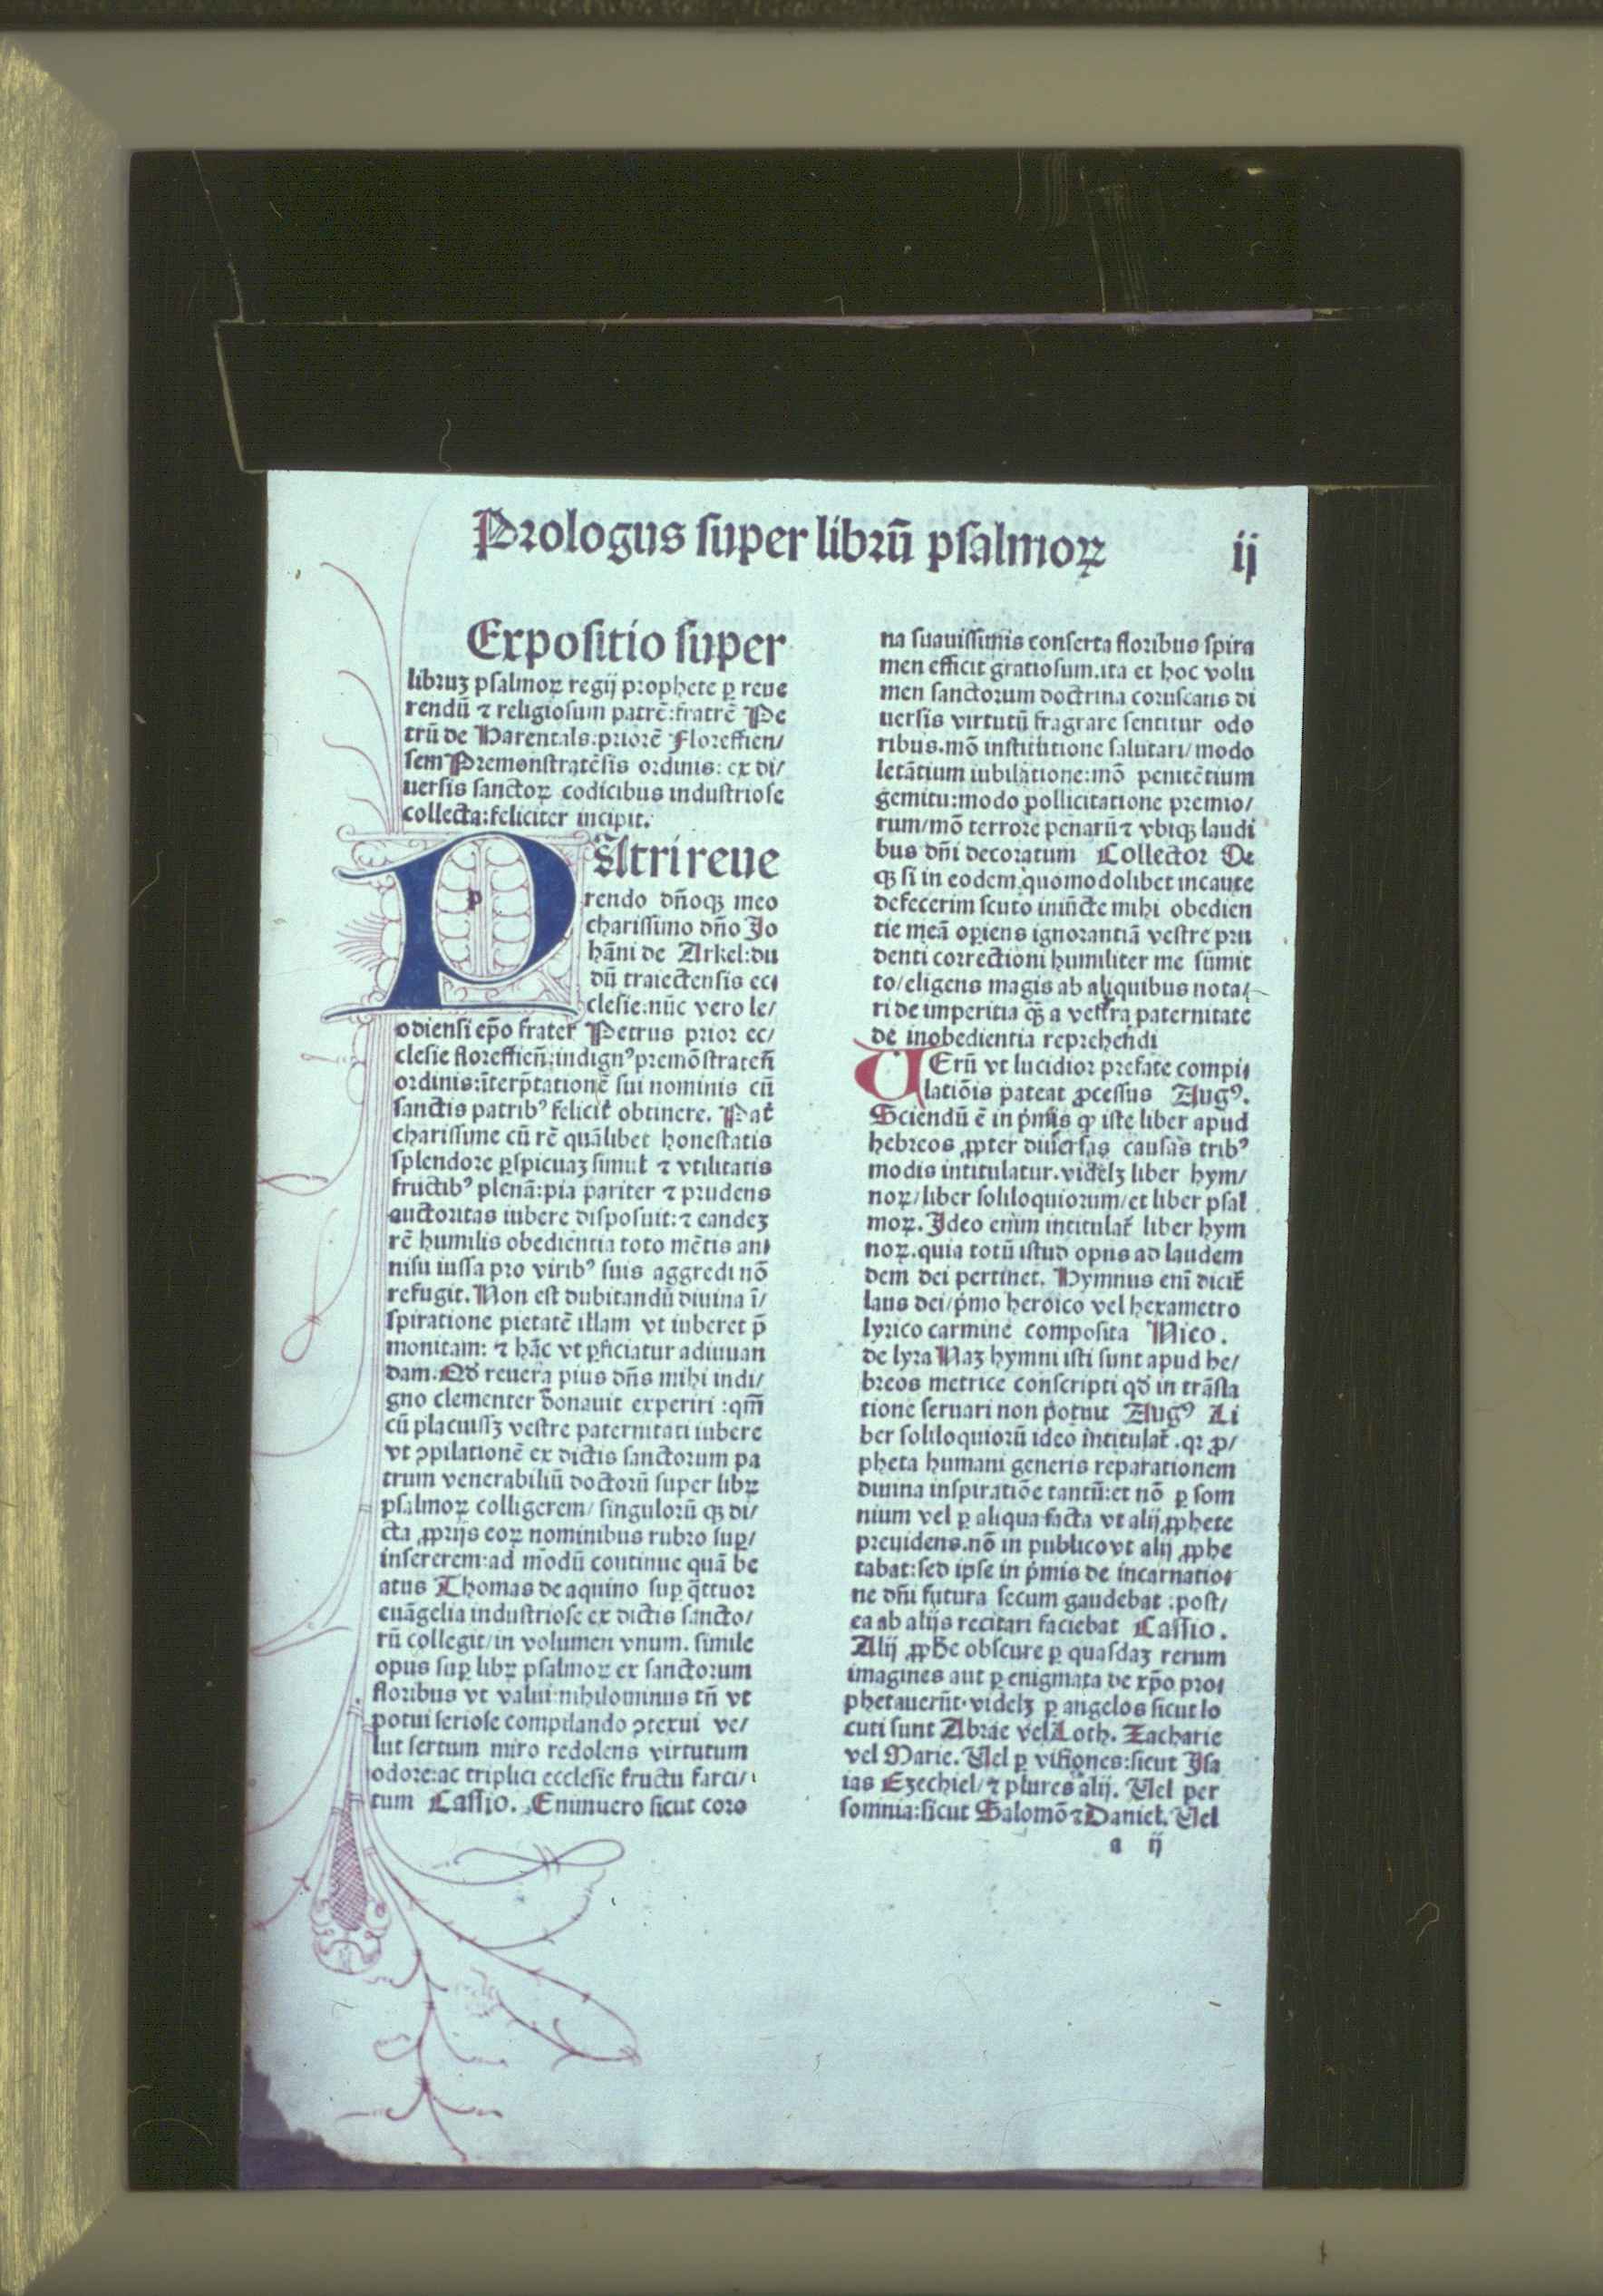 Prologus super librū psalmoꝝ ij
Expositio super
libruꝫ psalmoꝝ regij prophete ꝑ reue
rendū ⁊ religiosum patrē:fratrē Pe
trū de Harentals:priorē Floreffien/
sem Premonstratēsis ordinis: ex di/
uersis sanctoꝝ codicibus industriose
collecta:feliciter incipit.
PAtri reue
rendo dn̄oqꝫ meo
charissimo dn̄o Jo
hāni de Arkel:du
dū traiectensis ec
clesie:nūc vero le/
odiensi ep̄o frater Petrus prior ec/
clesie floreffien̄:indignꝰ premōstraten̄
ordinis:īterp̄tationē sui nominis cū
sanctis patribꝰ felicit̄ obtinere. Pat̄
charissime cū rē quālibet honestatis
splendore ꝑspicuaꝫ simul ⁊ vtilitatis
fructibꝰ plenā:pia pariter ⁊ prudens
auctoritas iubere disposuit:⁊ eandeꝫ
rē humilis obedientia toto mētis an
nisu iussa pro viribꝰ suis aggredi nō
refugit. Non est dubitandū diuina ī/
spiratione pietatē illam vt iuberet p̄
monitam: ⁊ hāc vt ꝑficiatur adiuuan
dam. Qd̄ reuera pius dn̄s mihi indi/
gno clementer donauit experiri :qm̄
cū placuissꝫ vestre paternitati iubere
vt ꝯpilationē ex dictis sanctorum pa
trum venerabiliū doctorū super libꝝ
psalmoꝝ colligerem/ singulorū qꝫ di/
cta ꝓprijs eoꝝ nominibus rubro suꝑ/
insererem:ad modū continue quā be
atus Thomas de aquino suꝑ q̄ttuor
euāgelia industriose ex dictis sancto/
rū collegit/in volumen vnum. simile
opus suꝑ libꝝ psalmoꝝ ex sanctorum
floribus vt valui:nihilominus tn̄ vt
potui seriose compilando ꝯtexui ve/
lut sertum miro redolens virtutum
odore:ac triplici ecclesie fructu farci/
tum Cassio. Enimuero sicut coro
na suauissimis conserta floribus spira
men efficit gratiosum.ita et hoc volu
men sanctorum doctrina coruscans di
uersis virtutū fragrare sentitur odo
ribus.mō institutione salutari/modo
letātium iubilatione:mō penitētium
gemitu:modo pollicitatione premio/
rum/mō terrore penarū⁊ vbiqꝫ laudi
bus dn̄i decoratum Collector De
qꝫ si in eodem quomodolibet incaute
defecerim scuto iniūcte mihi obedien
tie meā operiens ignorantiā vestre pru
denti correctioni humiliter me summit
to/eligens magis ab aliquibus nota/
ri de imperitia qꝫ̄ a vestra paternitate
de inobedientia reprehendi
UErū vt lucidior prefate compi
latiōis pateat ꝓcessus Augꝰ.
Sciendū ē in pͥmis ꝙ iste liber apud
hebreos ꝓpter diuersas causas tribꝰ
modis intitulatur.videlꝫ liber hym/
noꝝ/liber soliloquiorum/et liber psal
moꝝ. Ideo enim intitulat̄ liber hym
noꝝ.quia totū istud opus ad laudem
dem dei pertinet. Hymnus enī dicit̄
laus dei/pͥmo heroico vel hexametro
lyrico carmine composita Nico.
de lyra Naꝫ hymni isti sunt apud he/
breos metrice conscripti qd̄ in trāsla
tione seruari non potuit Augꝰ Li
ber soliloquiorū ideo intitulat̄ .qꝛ ꝓ/
pheta humani generis reparationem
diuina inspiratiōe tantū:et nō ꝑ som
nium vel ꝑ aliqua facta vt alij ꝓphete
preuidens.nō in publico vt alij ꝓphe
tabat:sed ipse in pͥmis de incarnatio
ne dn̄i futura secum gaudebat :post/
ea ab alijs recitari faciebat Cassio.
Alij ꝓphe obscure ꝑ quasdaꝫ rerum
imagines aut ꝑ enigmata de xp̄o pro
phetauerūt.videlꝫ ꝑ angelos sicut lo
cuti sunt Abrae vel Loth. Zacharie
vel Marie. Uel ꝑ visiones:sicut Isa
ias Ezechiel/⁊ plures alij. Uel per
somnia:sicut Salomō⁊Daniel. Uel
a ij